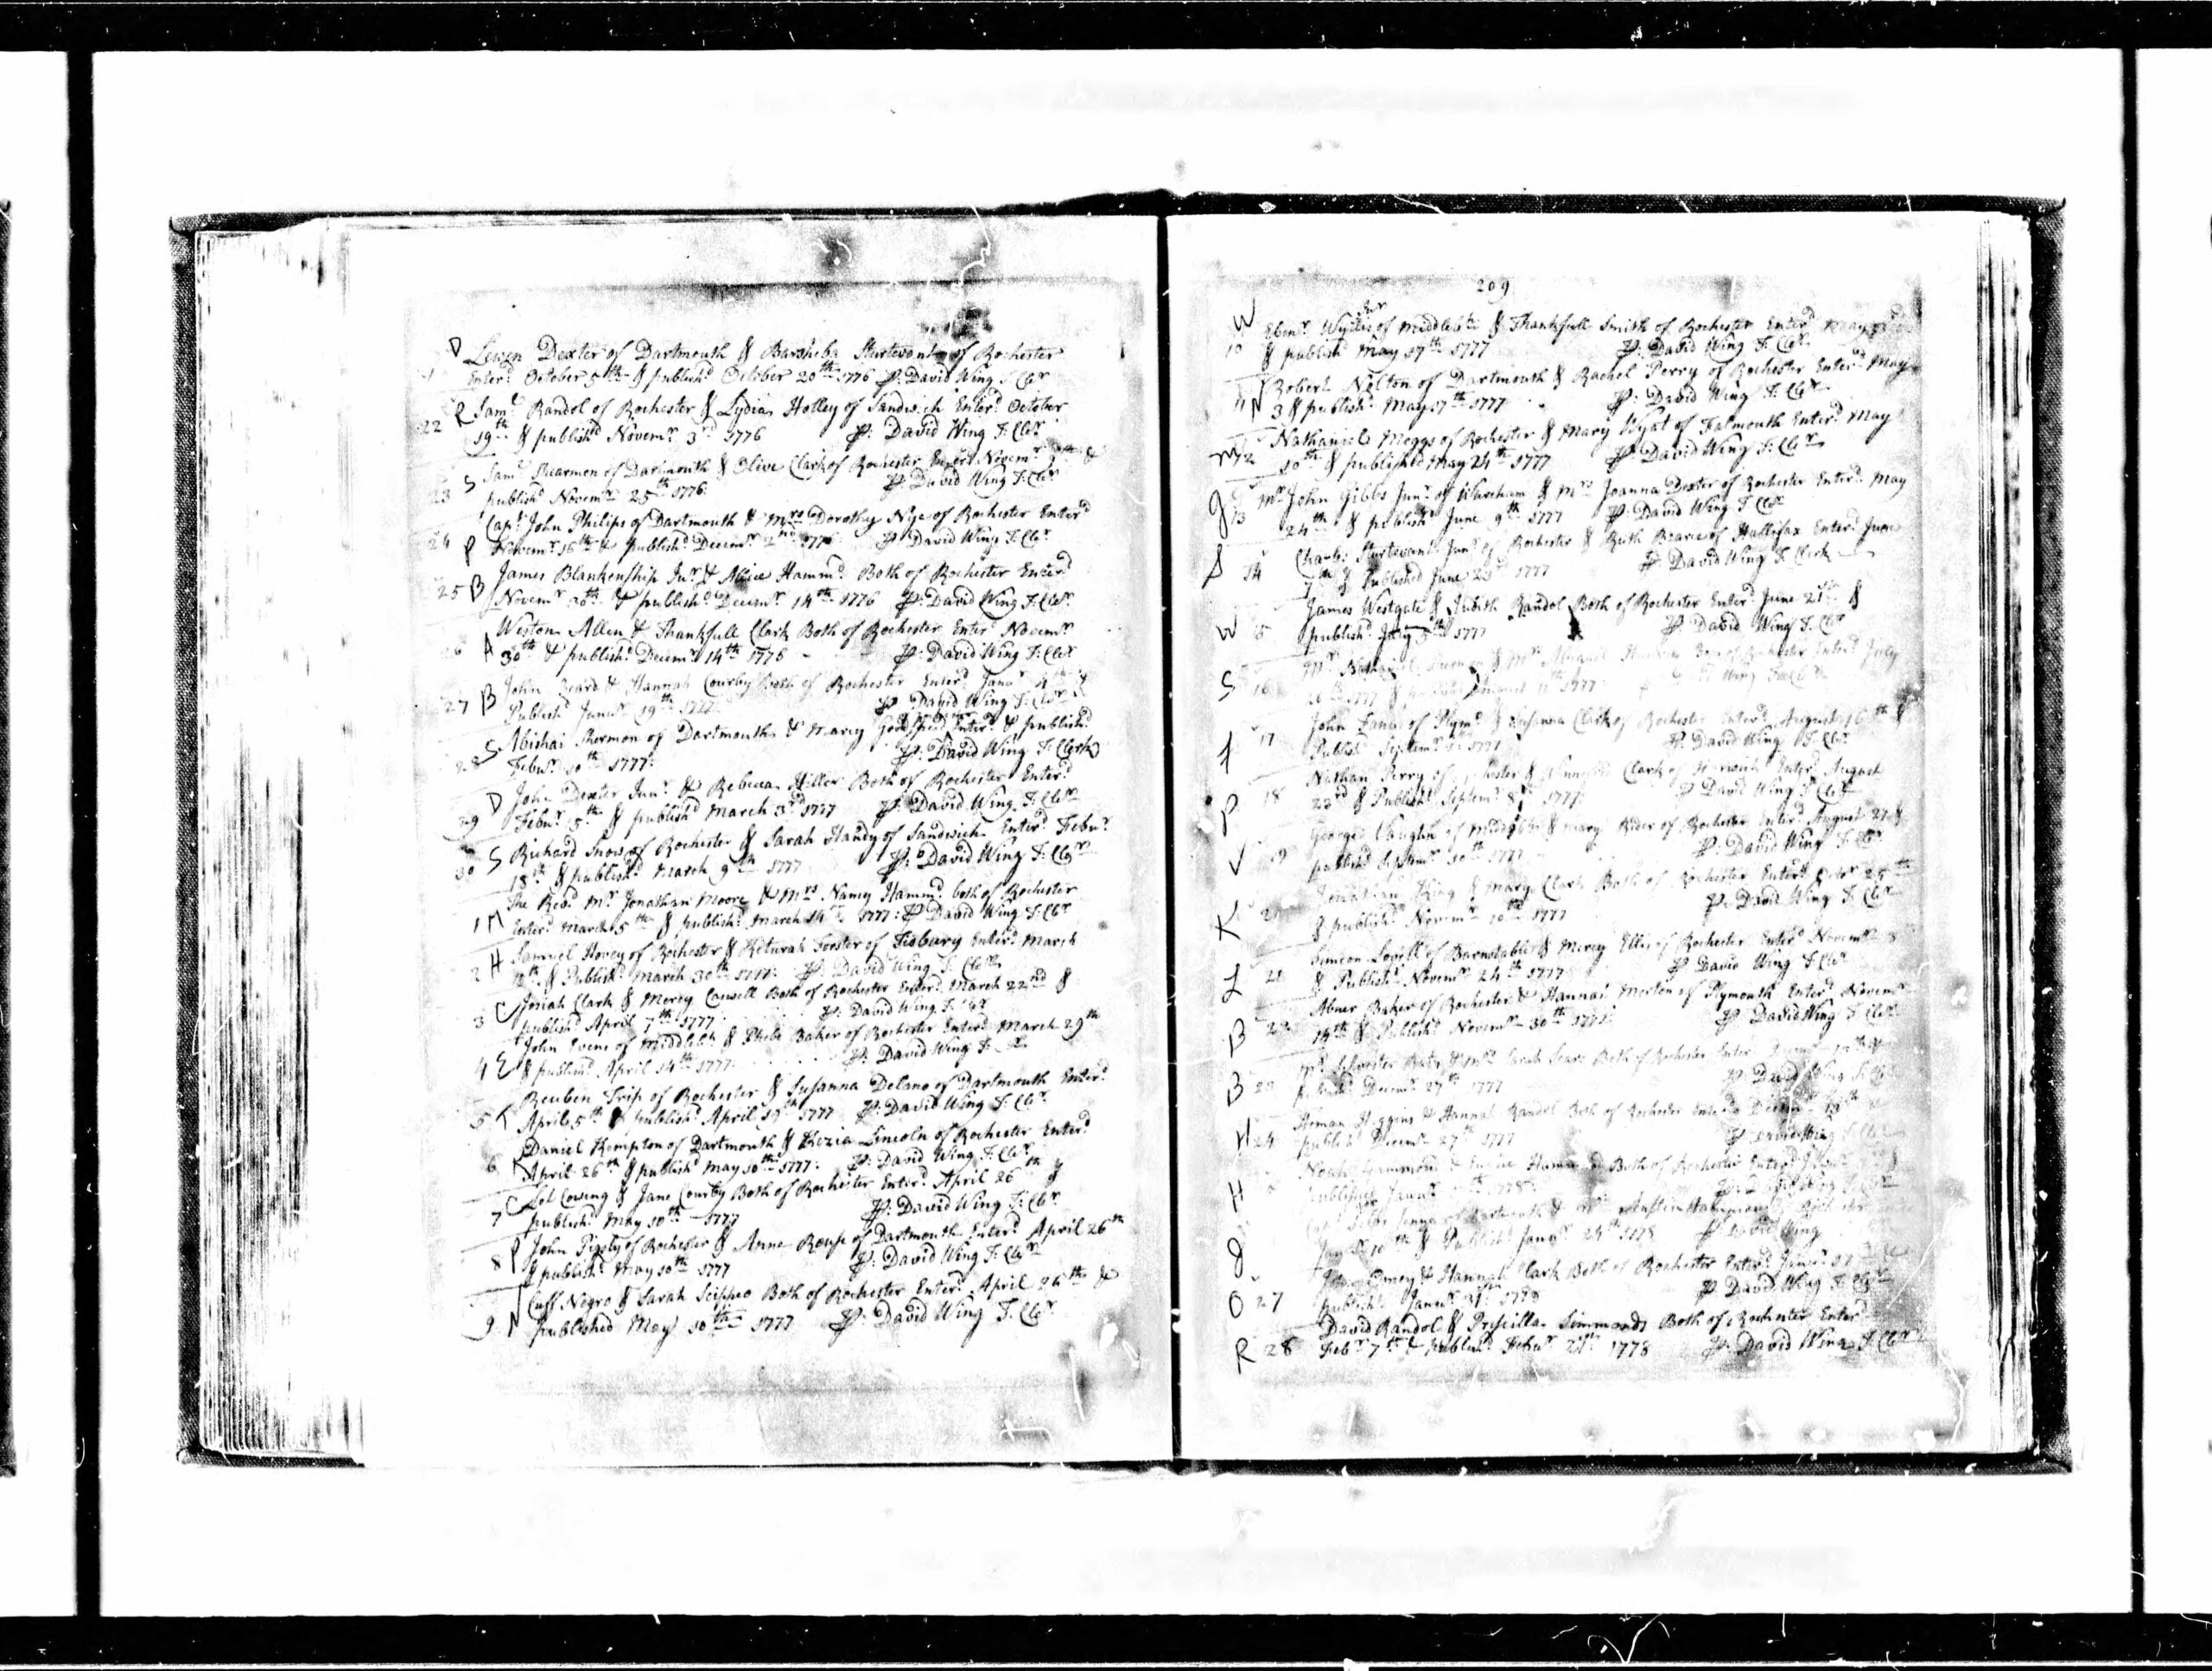 D Lewen Dexter of Dartmouth & Barsheba Sturtevant of Rochester
Enterd October 5th & publishd October 20th 1776 P: David Wing T: Cler
22 R Saml Randol of Rochester & Lydia Holley of Sandwich Enterd October
19th & publishd Novemr 3rd 1776 P: David Wing T: Cler
23 S Saml Shearmen of Dartmouth & Olive Clark of Rochester Enterd Novemr
publishd Novemr 25th 1776 P: David Wing T: Cler
Capt John Philips of Dartmouth & Mrs Dorothy Nye of Rochester Enterd
24 P Novemr 16th & publishd Decemr 2nd 1776 P: David Wing T: Cler
25 B James Blankenship Jur & Allice Hammd Both of Rochester Enterd
Novemr 30th & publishd Decemr 14th 1776 P: David Wing T: Cler
Weston Allen & Thankfull Clark Both of Rochester Enterd Novemr
26 A 30th & publishd Decemr 14th 1776 P: David Wing T: Cler
John Beard & Hannah Courby Both of Rochester Enterd Janr
27 B Publishd Janur 19th 1777 P: David Wing T: Cler
28 S Abishai Shermon of Dartmouth & Marcy Enterd & publishd
Febur 10th 1777: P: David Wing T: Clerk
D John Dexter Junr & Rebecca Hiller Both of Rochester Enterd
29 Febur 5th & publishd March 3rd 1777 P: David Wing T: Cler
30 S Richard Snow of Rochester & Sarah Handy of Sandwich Enterd Febur
18th & publishd March 9th 1777 P: David Wing T: Cler
The Revd Mr Jonathan Moore & Mrs Nancy Hammd both of Rochester
1 M Enterd March 5th & publishd March 14th 1777: P David Wing T: Cler
2 H Samuel Hovey of Rochester & Keturah Foster of Tisbury Enterd March
12th & Publishd March 30th 1777: P: David Wing T: Cler
3 C Josiah Clark & Mercy Caswell Both of Rochester Enterd March 22nd &
publishd April 7th 1777 P: David Wing T: Cler
John Evens of Middleboh & Phebe Baker of Rochester Enterd March 29th
4 E & publishd April 14th 1777 P: David Wing T:
Reuben Trip of Rochester & Susanna Delano of Dartmouth Enterd
5 T April 5th & publishd April 19th 1777 P: David Wing T: Cler
Daniel Kempton of Dartmouth & Kezia Lincoln of Rochester Enterd
6 K April 26th & publishd May 10th 1777: P: David Wing T: Cler
C Lot Cowing & Jane Courby Both of Rochester Enterd April 26th &
7 publishd May 10th 1777 P: David Wing T: Cler
P John Pigsly of Rochester & Anne Rouse of Dartmouth Enterd April 26th
8 & publishd May 10th 1777 P: David Wing T: Cler
N Cuff Negro & Sarah Scippeo Both of Rochester Enterd April 26th &
9 published May 10th 1777 P: David Wing T: Cler
209
W Ebenr of Middleboh & Thankfull Smith of Rochester Enterd May
10 & publishd May 17th 1777 P: David Wing T: Cler
Robert Nelton of Dartmouth & Rachel Perry of Rochester Enterd May
11 N 3 & publishd May 17th 1777 P: David Wing T: Cler
Nathaniel Meggs of Rochester & Mary Wyat of Falmouth Enterd May
M 12 10th & published May 24th 1777 P: David Wing T: Cler
G 13 Mr John Gibbs Junr of Wareham & Mrs Joanna Dexter of Rochester Enterd May
24th & publishd June 9th 1777 P: David Wing T Cler
S 14 Charls Sturtevant Junr of Rochester & Ruth of Hallifax Enterd June
7th & Published June 23d 1777 P: David Wing T: Clerk
James Westgate & Judith Randol Both of Rochester Enterd June 21st &
W publishd July 5th 1777 P: David Wing T: Cler
S 16 Mr Nathaniel & Mrs Abigail of Rochester Enterd July
1777 & August 11th 1777 Wing
John of Plymo & Susanna Clark of Rochester Enterd August 16th &
17 Publishd Septemr 1777 P: David Wing T: Cler
Nathan Perry of Rochester & Clark of Harwich Enterd August
P 18 23rd & Publishd Septemr 8 1777 P David Wing T Cler
George Vaughn of Middlbo & Mary Rider of Rochester Enterd August 27 &
V 19 publishd Septemr 10th 1777 P: David Wing T: Cler
Jonathan King & Mary Clark Both of Rochester Enterd Octor 25th
K & publishd Novemr 10th 1777 P: David Wing T: Cler
Simeon Lovell of Barnstable & Mercy Ellis of Rochester Enterd Novemr 8
L & Publishd Novemr 24th 1777 P David Wing T Cler
Abner Baker of Rochester & Hannah Morton of Plymouth Enterd Novemr
B 22 14th & Publishd Novemr 30th 1777 P David Wing T Cler
Mr Silvester & Mrs Sarah Sears Both of Rochester Enterd
B publishd Decemr 27th 1777 P: David Wing T: Cler
Heman Higgins & Hannah Randol Both of Rochester Enterd Decemr 13th
H 24 publishd Decemr 27th 1777 P David Wing T: Cler
Noah Hammond & Hammond Both of Rochester Enterd
H published Janur 1778 P: David Wing T: Cler
of Dartmouth & Mrs Hammond Rochester
J 10th & Publishd Janur 24th 1778 P: David Wing
& Hannah Clark Both of Rochester Enterd Janur 17
O 27 publishd Janur 31st 1778 P David Wing T: Cler
David Randol & Priscilla Simmonds Both of Rochester Enterd
R 28 Febr 7th & publishd Febur 21st 1778 P: David Wing T: Cler